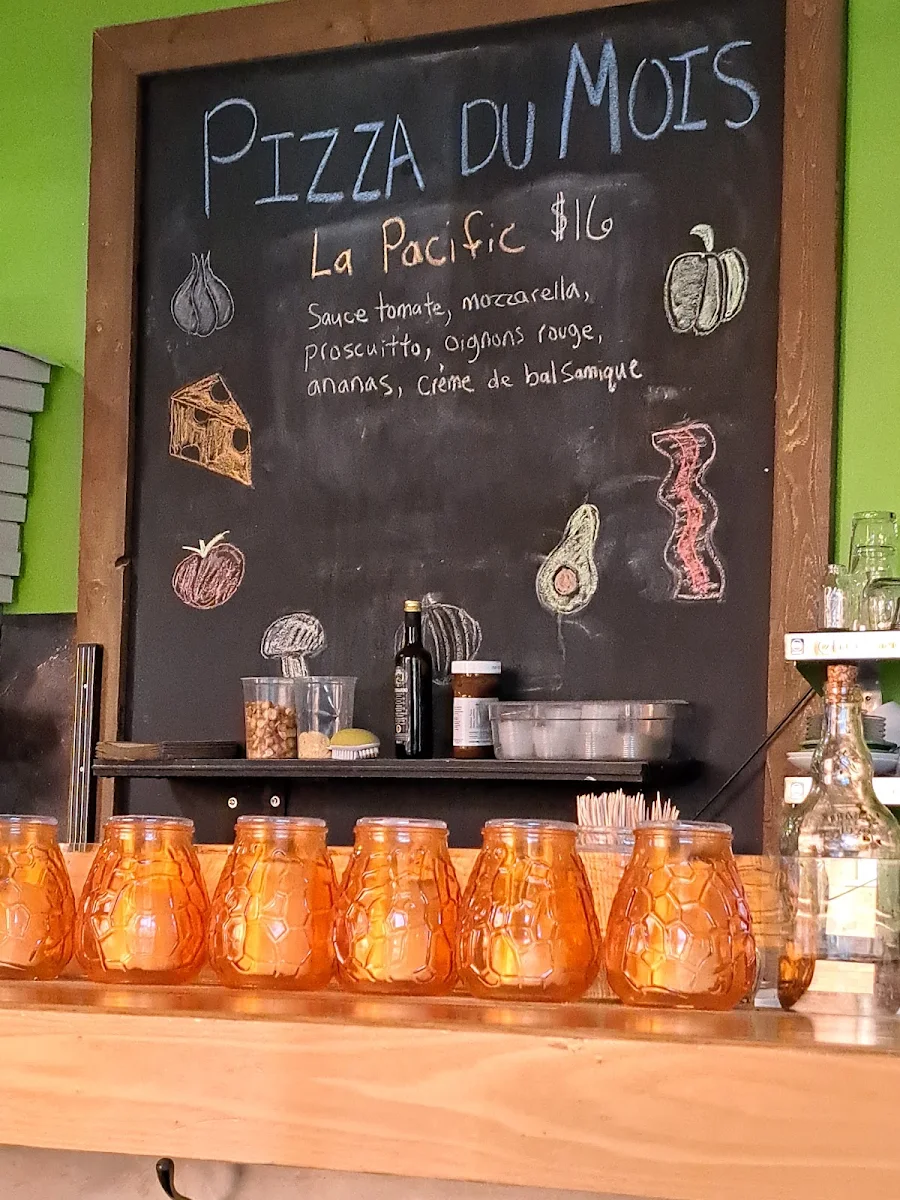 PIZZA DU MOIS
La Pacific $16
Sauce tomate, mozzarella,
proscuitto, oignons rouge,
ananas, crème de balsamique